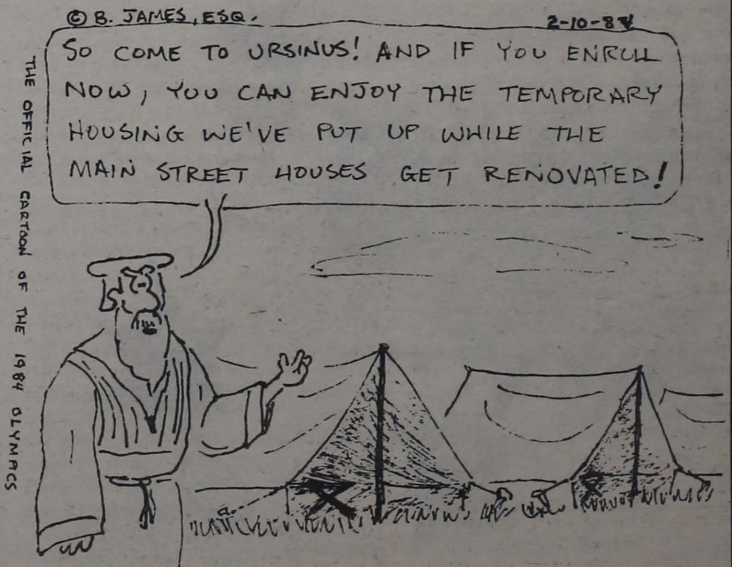 © B. JAMES, ESQ.
2-10-84
SO COME TO URSINUS! AND IF YOU ENROLL
NOW, YOU CAN ENJOY THE TEMPORARY
HOUSING WE'VE PUT UP WHILE THE
MAIN STREET HOUSES GET RENOVATED!
THE OFFICIAL CARTOON OF THE 1984 OLYMPICS